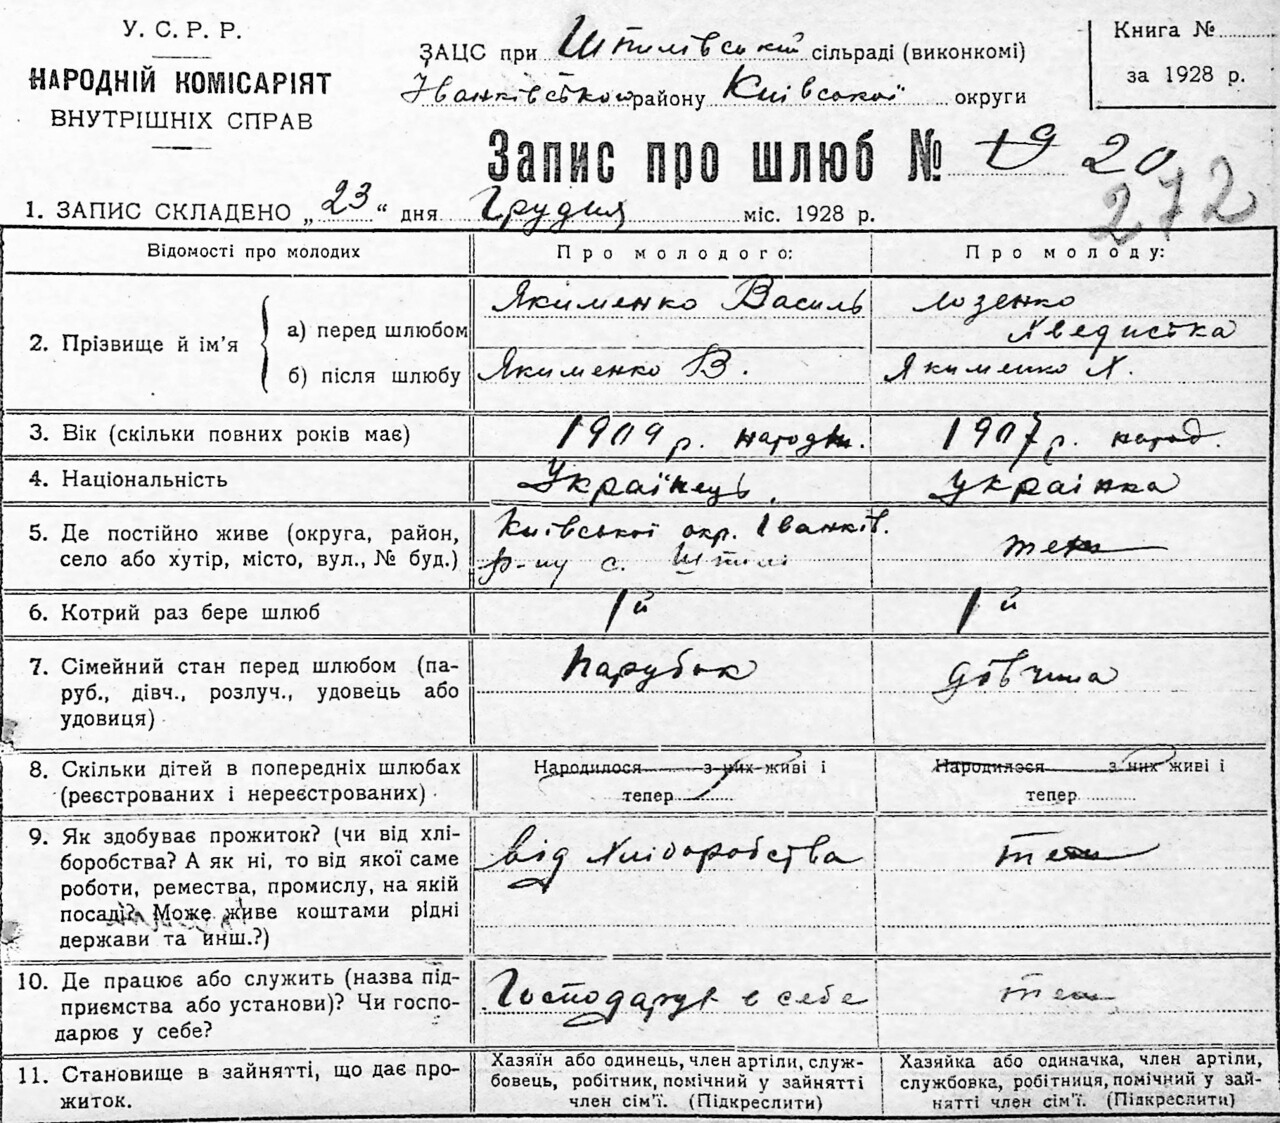 У. С. Р. Р.
НАРОДНІЙ КОМІСАРІЯТ
ВНУТРІШНІХ СПРАВ
ЗАЦС при Штилівській сільраді (виконкомі)
Іванківського району Київської округи
Книга №
за 1928 р.
Запис про шлюб № 19 20
272
1. ЗАПИС СКЛАДЕНО „23“ дня Грудня міс. 1928 р.
Відомості про молодих
Про молодого:
Про молоду:
2. Прізвище й ім’я
а) перед шлюбом
Якименко Василь
Лозенко
Хведистка
б) після шлюбу
Якименко В.
Якименко Х.
3. Вік (скільки повних років має)
1909 р. народж.
1907 р. народ.
4. Національність
Українець.
Українка
5. Де постійно живе (округа, район,
село або хутір, місто, вул., № буд.)
Київської окр. Іванків.
р-ну с. Штилі
теж
6. Котрий раз бере шлюб
1й
1й
7. Сімейний стан перед шлюбом (па-
руб., дівч., розлуч., удовець або
удовиця)
Парубок
Дівчина
8. Скільки дітей в попередніх шлюбах
(реєстрованих і нереєстрованих)
Народилося з них живі і
тепер
Народилося з них живі і
тепер
9. Як здобуває прожиток? (чи від хлі-
боробства? А як ні, то від якої саме
роботи, ремества, промислу, на якій
посаді? Може живе коштами рідні
держави та инш.?)
від Хліборобства
теж
10. Де працює або служить (назва під-
приємства або установи)? Чи госпо-
дарює у себе?
Господарує в себе
теж
11. Становище в зайнятті, що дає про-
житок.
Хазяїн або одинець, член артіли, служ-
бовець, робітник, помічний у зайнятті
член сім’ї. (Підкреслити)
Хазяйка або одиначка, член артіли,
службовка, робітниця, помічний у зай-
нятті член сім’ї. (Підкреслити)